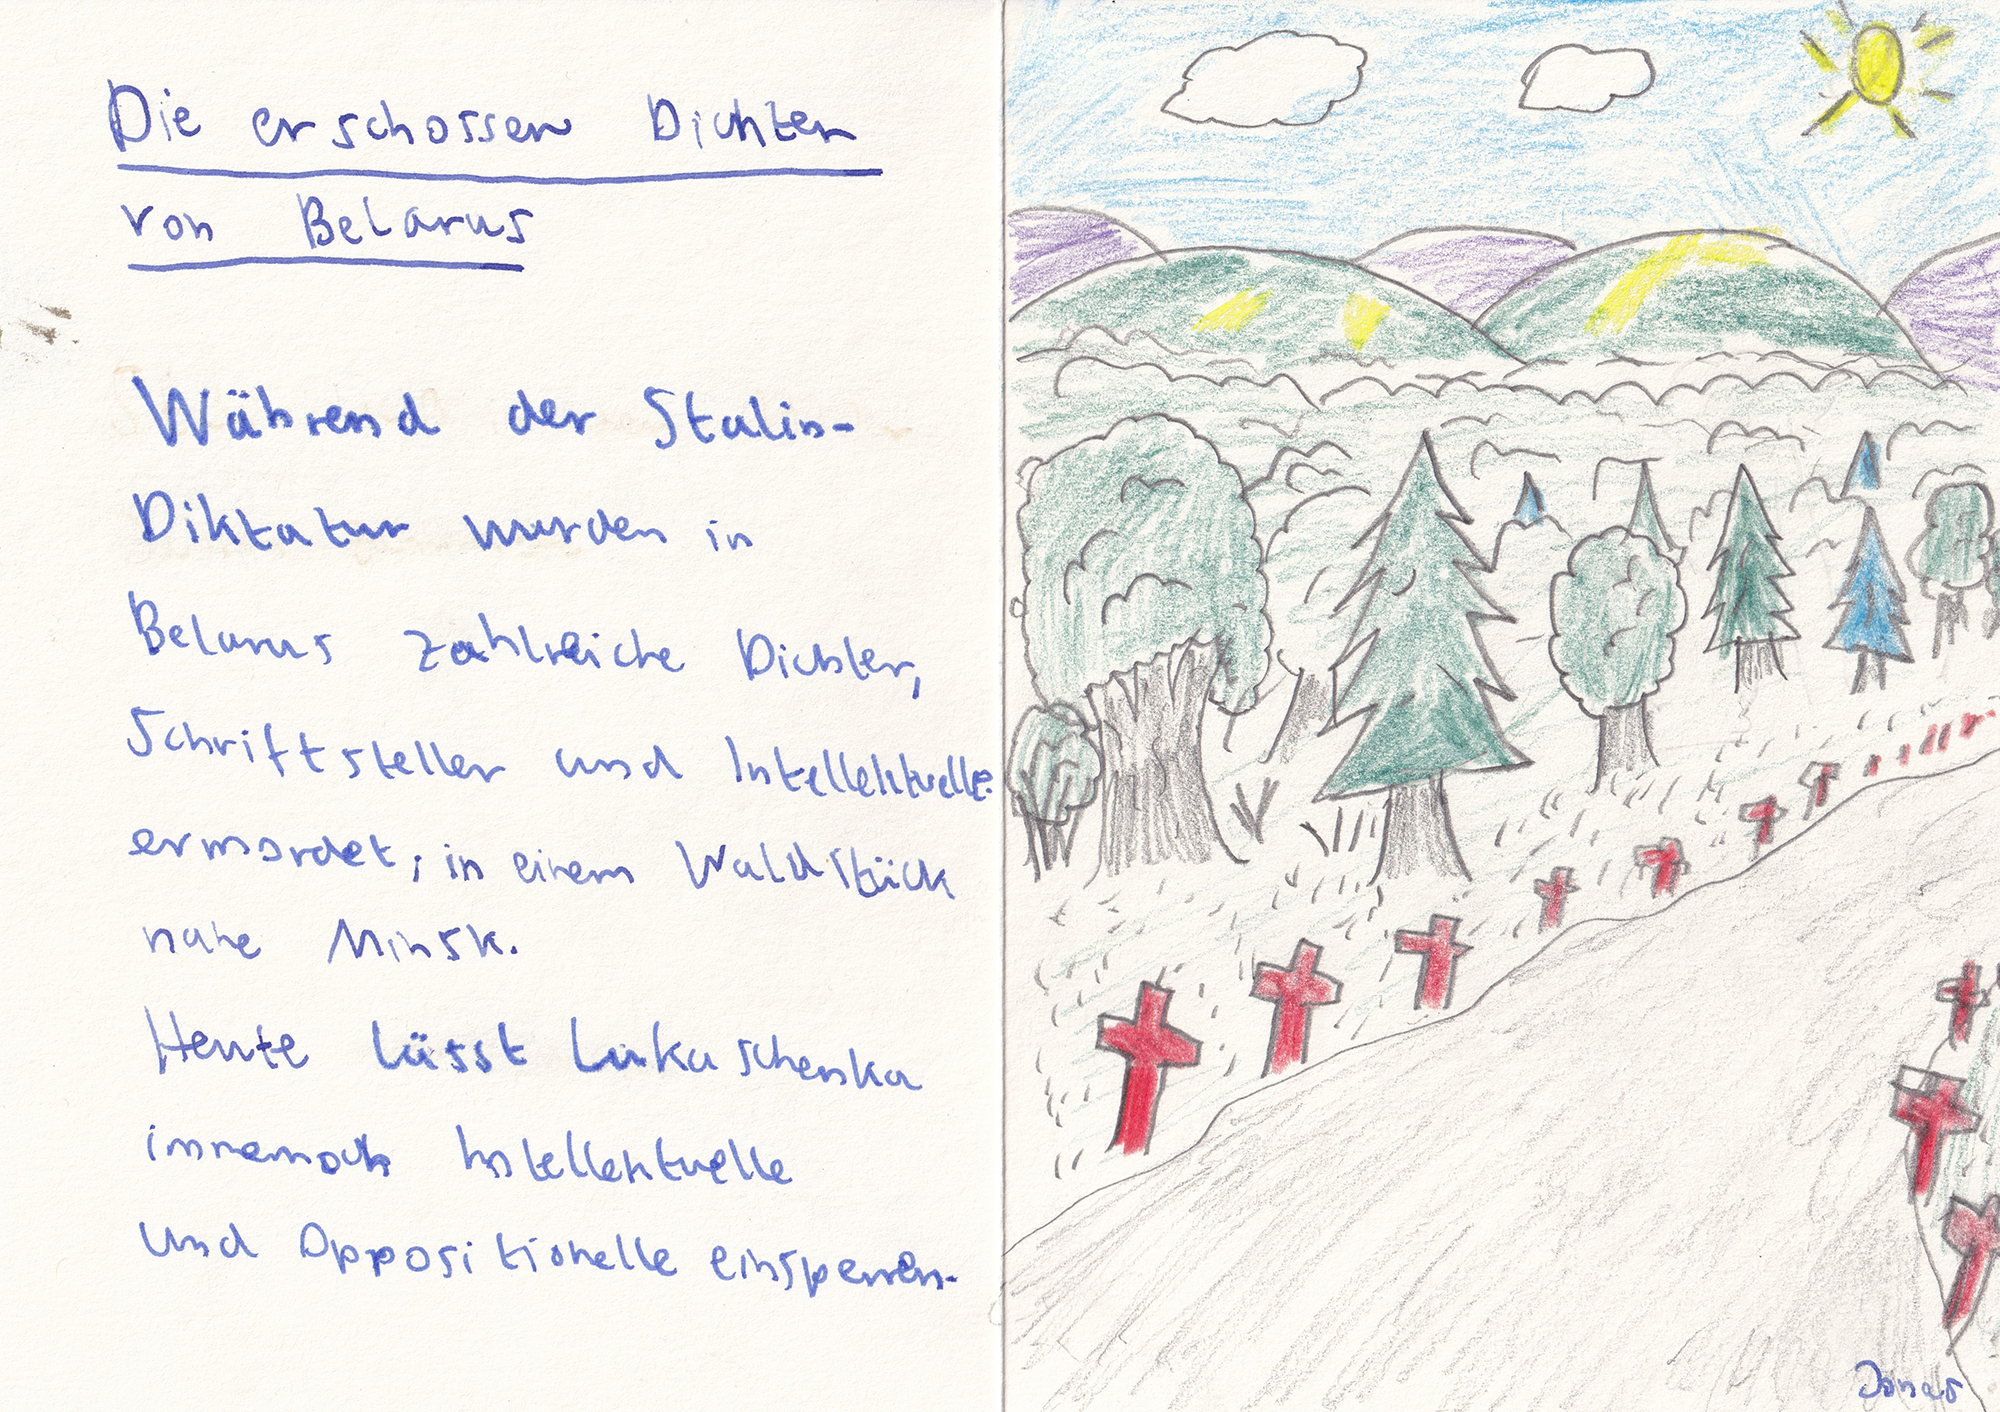 Die erschossen Dichter
von Belarus
Während der Stalin-
Diktatur wurden in
Belarus zahlreiche Dichter,
Schriftsteller und Intellektuelle
ermordet, in einem Waldstück
nahe Minsk.
Heute lässt Lukaschenka
immernoch Intellektuelle
und Oppositionelle einsperren.
Jonas